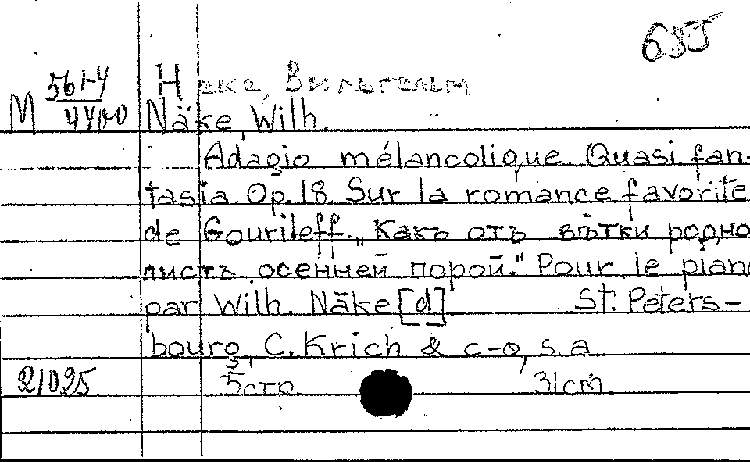 655
M 561-4
4400
Неке, Вильгельм
Näke, Wilh.
Adagio mélancolique. Quasi fan-
tasia. Op. 18. Sur la romance favorite
de Gourileff. „Какъ отъ вѣтки родно
листъ осенней порой." Pour le piano
par Wilh. Näke [d] St. Peters-
bourg, C. Krich & c-o, s.a.
21025 5 стр. 31 см.